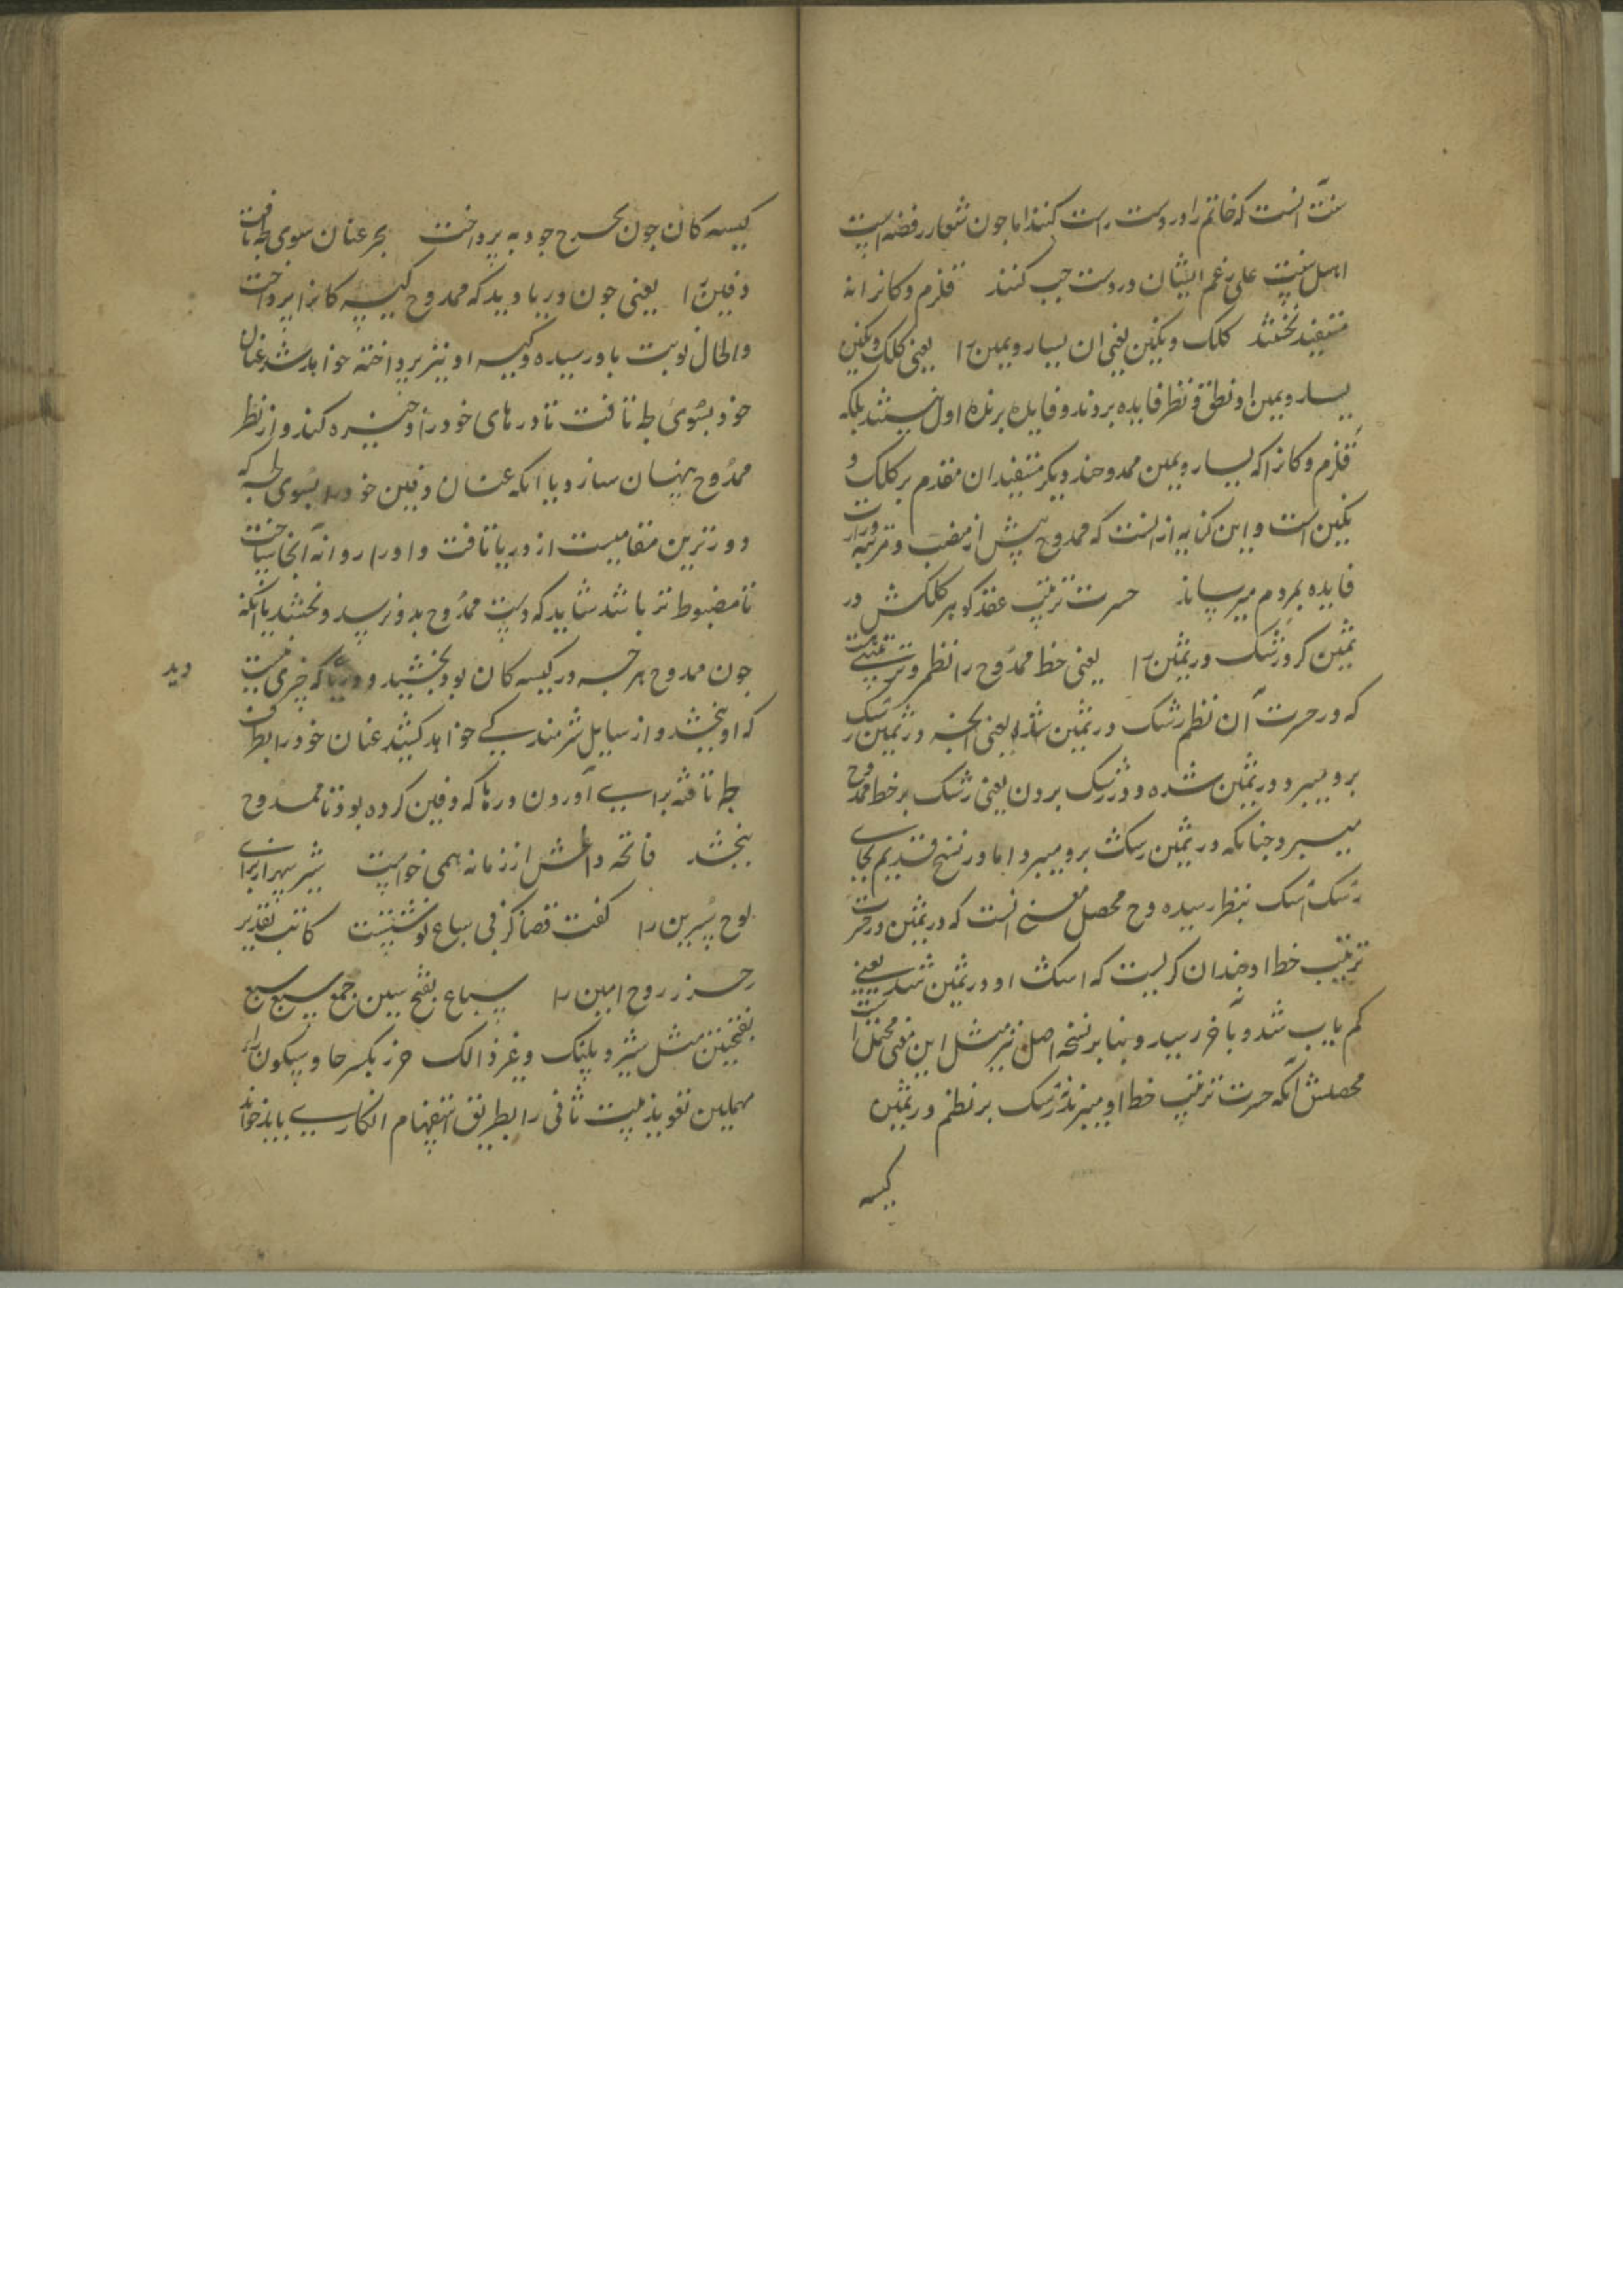 سنت آنست که خاتم را در دست راست کنند اما جون شعار رفضه است
اهل سنت علی رغم ایشان در دست چپ کنند قلزم و کانرا نه
مستفید نخستند کلک و نکین یعنی ان یسار و یمین را یعنی کلک و نکین
یسار و یمین او نطق و نظر فایده بروند و فایده برنده اول نیستند بلکه
قلزم و کانرا که یسار و یمین ممدوحند دیکر مستفیدان مقدم بر کلک و
نکین است و این کنایه از انست که ممدوح پیش از منصب و مرتبه وزارت
فایده بمردم میرساند حسرت ترتیب عقد کوهر کلکش در
ثمین کرد رشک در ثمین را یعنی خط ممدوح را نظم و ترتیبیست
که در حسرت آن نظم رشک در ثمین شد یعنی انچه در ثمین رشک
برو میبرد در ثمین شده و در رشک بردن یعنی رشک بر خط ممدوح
میبرد چنانکه در ثمین رشک برو میبرد اما در نسخ قدیم بجای
رشک اشک بنظر رسیده وح محصل معنی انست که در ثمین در حسرت
ترتیب خط او چندان کریست که اشک او در ثمین شد یعنی
کم یاب شد و بآخر رسید و بنا بر نسخه اصل نیز مثل این معنی محتمل است
محصلش آنکه حسرت ترتیب خط او میبرند رشک بر نظم در ثمین
کیسه
کیسه کان جون بخرج جود به پرداخت بحر عنان سوی لجه تافت
دفین را یعنی جون دریا دید که ممدوح کیسه کانرا پرداخت
والحال نوبت باو رسیده و کیسه او نیز پرداخته خواهد شد عنان
خود بسوی لجه تافت تا درهای خود را ذخیره کند و از نظر
ممدوح پنهان سازد یا انکه عنان دفین خود را بسوی لجه که
دورترین مقامیست از دریا تافت و او را روانه آنجا ساخت
تا مضبوط تر باشد شاید که دست ممدوح بدو نرسد و نبخشد یا انکه
جون ممدوح هر چه در کیسه کان بود بخشید و دریا که چیزی نیست دید
که او بخشد و از سایل شرمندکی خواهد کشید عنان خود را بطرف
لجه تافته برای آوردن درها که دفین کرده بود تا ممدوح
ببخشد فاتحه داغش از زمانه همی خواست شیر سپهر از برای
لوح سرین را کفت قضا کز فی سباع نوشتست کاتب تقدیر
حرز روح امین را سباع بفتح سین جمع سبع سبع
بفتحتین مثل شیر و پلنک و غیر ذالک حرز بکسر حا و سکون را
مهملین تعویذ بیت ثانی را بطریق استفهام انکاری باید خواند